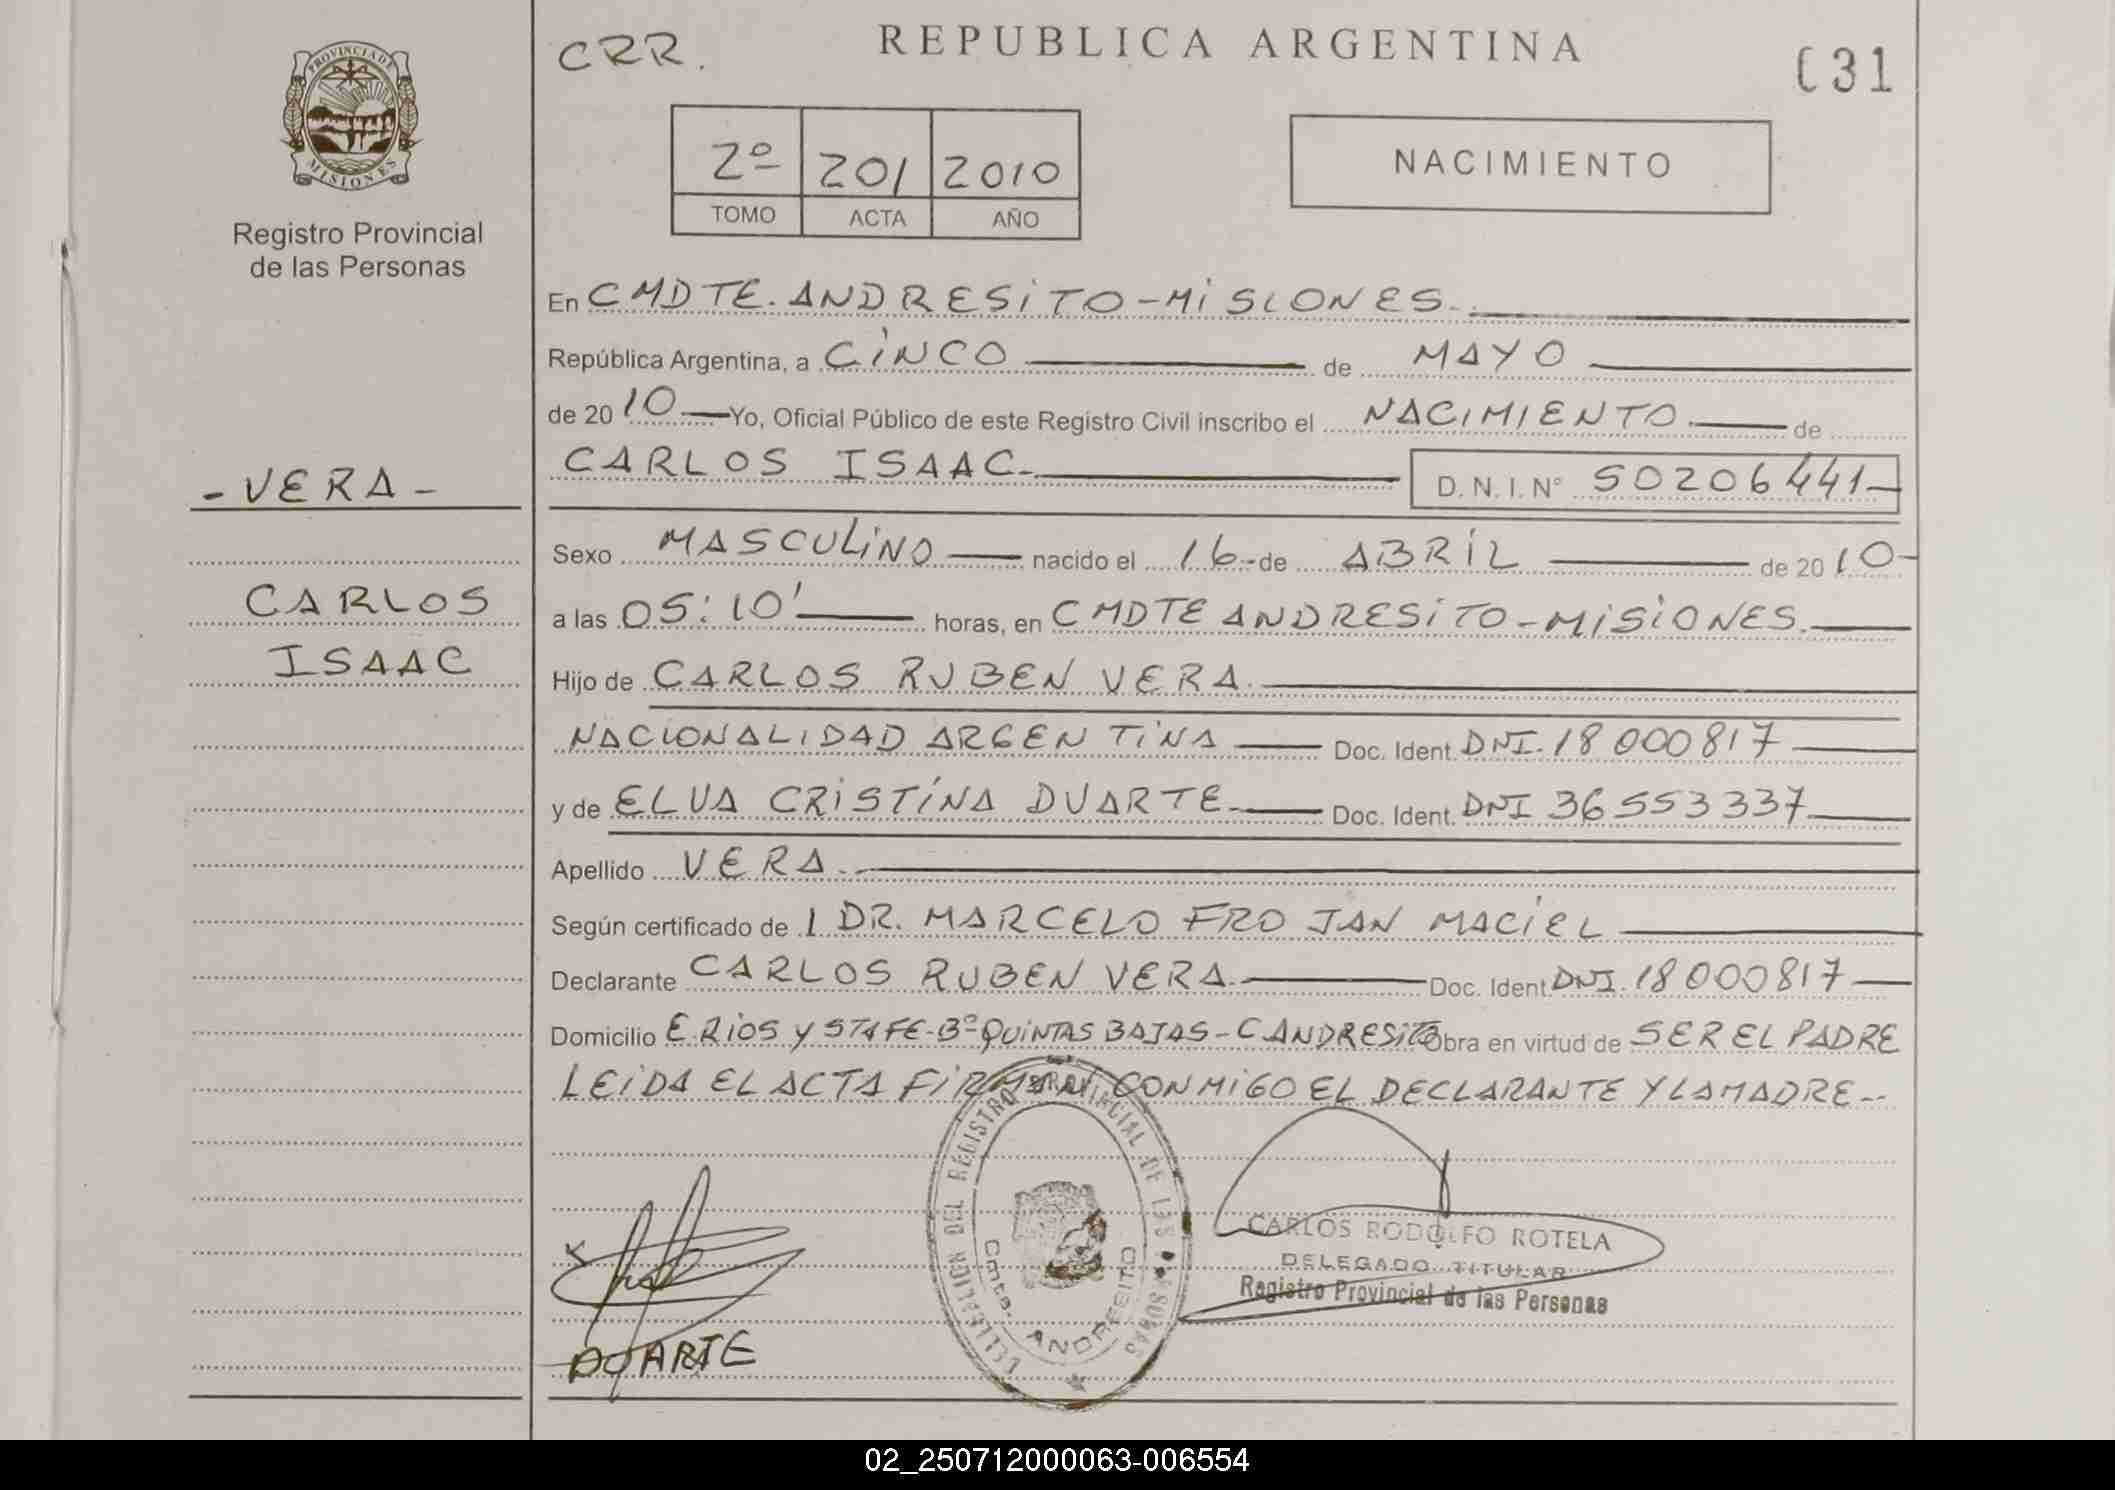 CRR.
REPUBLICA ARGENTINA
C31
PROVINCIA DE MISIONES
Registro Provincial
de las Personas
2º 201 2010
TOMO ACTA AÑO
NACIMIENTO
En CMDTE. ANDRESITO - MISIONES.
República Argentina, a CINCO de MAYO
de 2010 Yo, Oficial Público de este Registro Civil inscribo el NACIMIENTO de
CARLOS ISAAC. D.N.I.N° 50206441
- VERA -
CARLOS
ISAAC
Sexo MASCULINO nacido el 16 de ABRIL de 2010
a las 05:10' horas, en CMDTE ANDRESITO - MISIONES.
Hijo de CARLOS RUBEN VERA.
NACIONALIDAD ARGENTINA Doc. Ident. DNI. 18000817
y de ELVA CRISTINA DUARTE Doc. Ident. DNI 36553337
Apellido VERA.
Según certificado de 1 DR. MARCELO FRO JAN MACIEL
Declarante CARLOS RUBEN VERA. Doc. Ident. DNI. 18000817
Domicilio E. RIOS Y STA FE - Bº QUINTAS BAJAS - C ANDRESITO Obra en virtud de SER EL PADRE
LEIDA EL ACTA FIRMAN CONMIGO EL DECLARANTE Y LA MADRE --
DUARTE
DELEGACION DEL REGISTRO PROVINCIAL DE LAS PERSONAS
Cmte. ANDRESITO
CARLOS RODOLFO ROTELA
DELEGADO TITULAR
Registro Provincial de las Personas
02_250712000063-006554